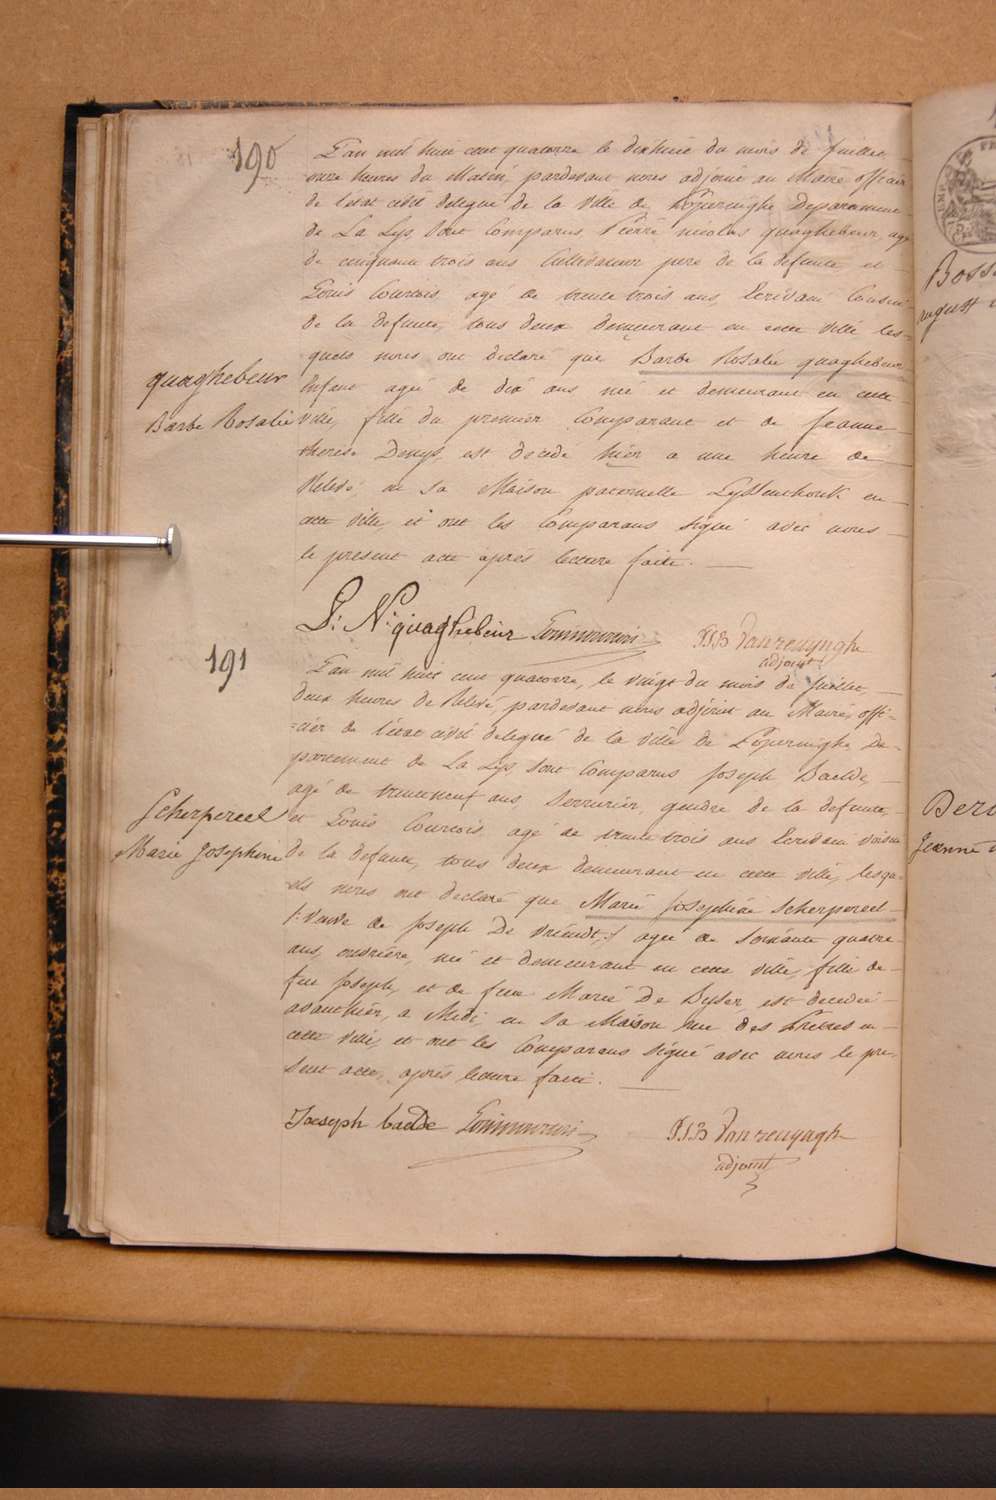 190
L'an mil huit cent quatorze le dixhuit du mois de juillet
onze heures du Matin, pardevant nous adjoint au Maire officier
de l'état civil delegué de la ville de Poperinghe Departement
de La Lys, Sont Comparus Pierre nicolas quaghebeur, agé
de cinquante trois ans Cultivateur pere de la defunte et
Louis Courtois, agé de trente trois ans, Ecrivain Cousin
de la defunte, tous deux demeurant en cette ville les-
quels nous ont declaré que Barbe Rosalie quaghebeur
quaghebeur
Barbe Rosalie
Enfant agée de dix ans née et demeurant en cette
ville, fille du premier Comparant et de Jeanne
therese Denys, est decedé hier a une heure de
Relevé, en sa Maison paternelle en
cette ville, et ont les Comparans signé avec nous
le present acte après lecture faite.
P: N: quaghebeur
P J B Vanrenynghe
adjoint
191
L'an mil huit cent quatorze, le vingt du mois de juillet
deux heures de Relevé, pardevant nous adjoint au Maire, offi-
=cier de l'état civil delegué de la ville de Poperinghe De-
partement de La Lys, Sont Comparus Joseph Baelde,
agé de trenteneuf ans, Serrurier, gendre de la defunte,
et Louis Courtois, agé de trente trois ans Ecrivain voisin
Scherpereel
Marie Josephine
de la defunte, tous deux demeurant en cette ville, lesqu-
els nous ont declaré que Marie Josephine Scherpereel
/: veuve de Joseph De vriendt, :/ agée de soixante quatre
ans, ouvrière, née et demeurant en cette ville, fille de
feu Joseph, et de feue Marie De Dyser, est decedée
avanthier, a Midi, en sa Maison rue des Pretres en
cette ville, et ont les Comparans signé avec nous le pre-
sent acte, après lecture faite.
Joeseph baelde
P J B Vanrenynghe
adjoint
Jeanne